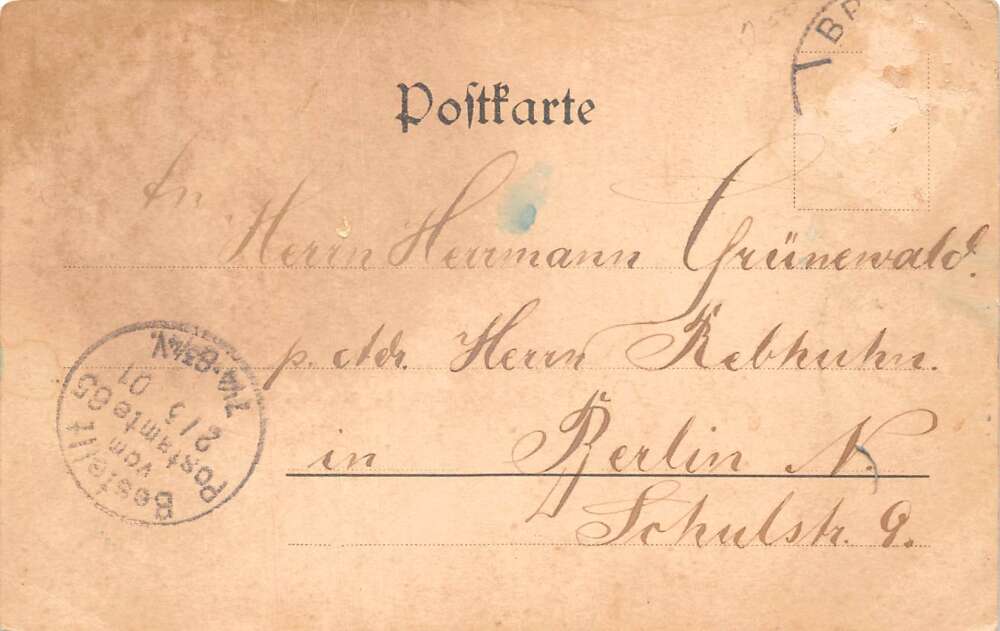 BR
Postkarte
An
Herrn Herrmann Grünewald.
p. Adr. Herrn Rebhuhn.
in Berlin N.
Schulstr. 9.
Bestellt
vom
Postamte 65
2/5
01
7¼-8¾V.